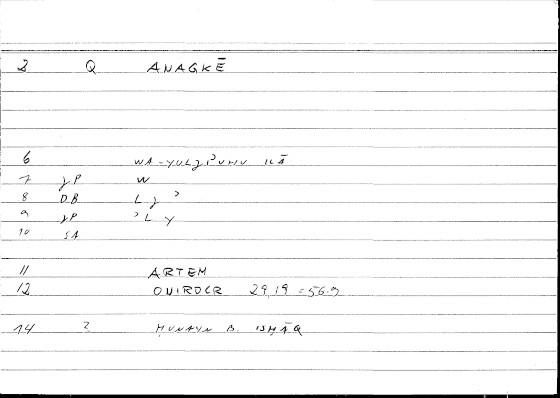 2 Q ANAGKĒ
6 WA-YULJI'UHU ILĀ
7 JP W
8 DB L J '
9 JP ' L Y
10 SA
11 ARTEM
12 ONIROCR 29,19 = 56.9
14 2 ḤUNAYN B. ISḤĀQ